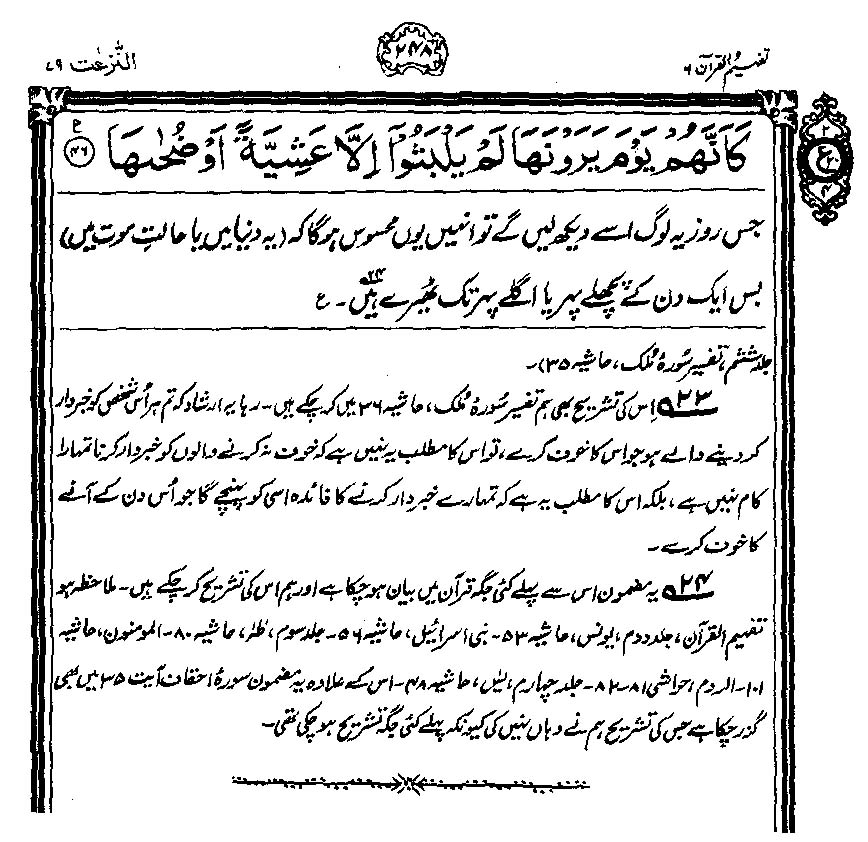 تفہیم القرآن ۶
۲۴۸
النّٰزعٰت ۷۹
كَاَنَّهُمْ يَوْمَ يَرَوْنَهَا لَمْ يَلْبَثُوْٓا اِلَّا عَشِيَّةً اَوْ ضُحٰىهَا ۴۶ ع
جس روز یہ لوگ اسے دیکھ لیں گے تو انہیں یوں محسوس ہوگا کہ (یہ دنیا میں یا حالتِ موت میں)
بس ایک دن کے پچھلے پہر یا اگلے پہر تک ٹھیرے ہیں۲۴۔ ع
جلد ششم، تفسیر سُورۂ مُلک، حاشیہ ۳۵)۔
۲۳؎ اِس کی تشریح بھی ہم تفسیر سُورۂ مُلک، حاشیہ ۳۶ میں کر چکے ہیں۔ رہا یہ ارشاد کہ تم ہر اُس شخص کو خبردار
کر دینے والے ہو جو اس کا خوف کرے، تو اس کا مطلب یہ نہیں ہے کہ خوف نہ کرنے والوں کو خبردار کرنا تمہارا
کام نہیں ہے، بلکہ اس کا مطلب یہ ہے کہ تمہارے خبردار کرنے کا فائدہ اسی کو پہنچے گا جو اُس دن کے آنے
کا خوف کرے۔
۲۴؎ یہ مضمون اس سے پہلے کئی جگہ قرآن میں بیان ہو چکا ہے اور ہم اس کی تشریح کر چکے ہیں۔ ملاحظہ ہو
تفہیم القرآن، جلد دوم، یونس، حاشیہ ۵۳۔ بنی اسرائیل، حاشیہ ۵۶۔ جلد سوم، طٰہٰ، حاشیہ ۸۰۔ المومنون، حاشیہ
۱۰۱۔ الروم، حواشی ۸۱-۸۲۔ جلد چہارم، یٰس، حاشیہ ۴۸۔ اس کے علاوہ یہ مضمون سورۂ احقاف آیت ۳۵ میں بھی
گزر چکا ہے جس کی تشریح ہم نے وہاں نہیں کی کیونکہ پہلے کئی جگہ تشریح ہو چکی تھی۔